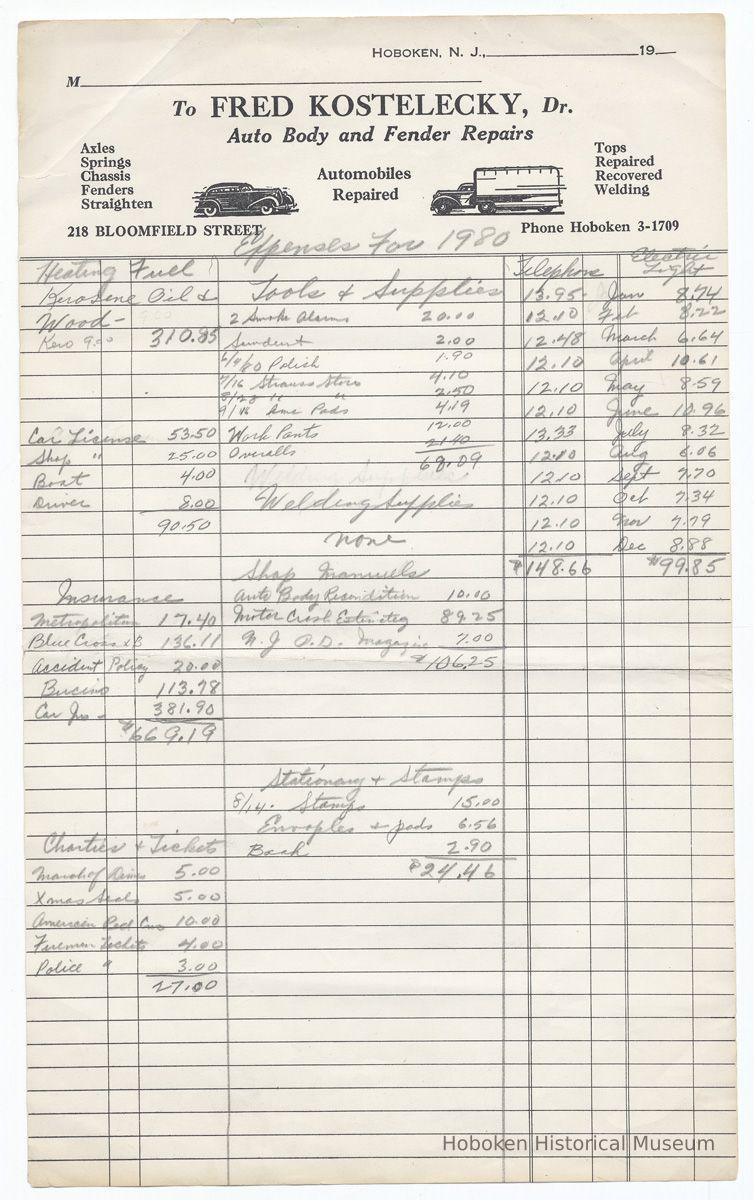 HOBOKEN, N. J., 19
M
To FRED KOSTELECKY, Dr.
Auto Body and Fender Repairs
Axles
Springs
Chassis
Fenders
Straighten
Automobiles
Repaired
Tops
Repaired
Recovered
Welding
218 BLOOMFIELD STREET
Phone Hoboken 3-1709
Expenses For 1980
Heating Fuel
Kerosene Oil &
Wood -
Kero 9.00 310.85
Car License 53.50
Shop " 25.00
Boat 4.00
Driver 8.00
90.50
Insurance
Metropolitan 17.40
Blue Cross & B 136.11
Accident Policy 20.00
113.78
Car Ins - 381.90
$669.19
Charties & Tickets
March of Dimes 5.00
Xmas Seals 5.00
American Red Cros 10.00
Firemen Tickets 4.00
Police " 3.00
27.00
Tools & Supplies
2 Smoke Alarms 20.00
2.00
6/9/80 Polish 1.90
7/16 Strauss Store 4.10
8/23 " " 2.50
9/16 Pads 4.19
Work Pants 12.00
Overalls 21.40
68.09
Welding Supplies
none
Shop Manuels
Auto Body Recondition 10.00
Motor Crash Estimateg 89.25
N.J. Magazine 7.00
$106.25
Stationary & Stamps
8/14. Stamps 15.00
Envoples & pads 6.56
Book 2.90
$24.46
Telephone
13.95
12.10
12.48
12.10
12.10
12.10
13.33
12.10
12.10
12.10
12.10
12.10
$148.66
Electric
Light
Jan 8.74
Feb 8.22
March 6.64
April 10.61
May 8.59
June 10.96
July 8.32
Aug 6.06
Sept 7.70
Oct 7.34
Nov 7.79
Dec 8.88
$99.85
Hoboken Historical Museum